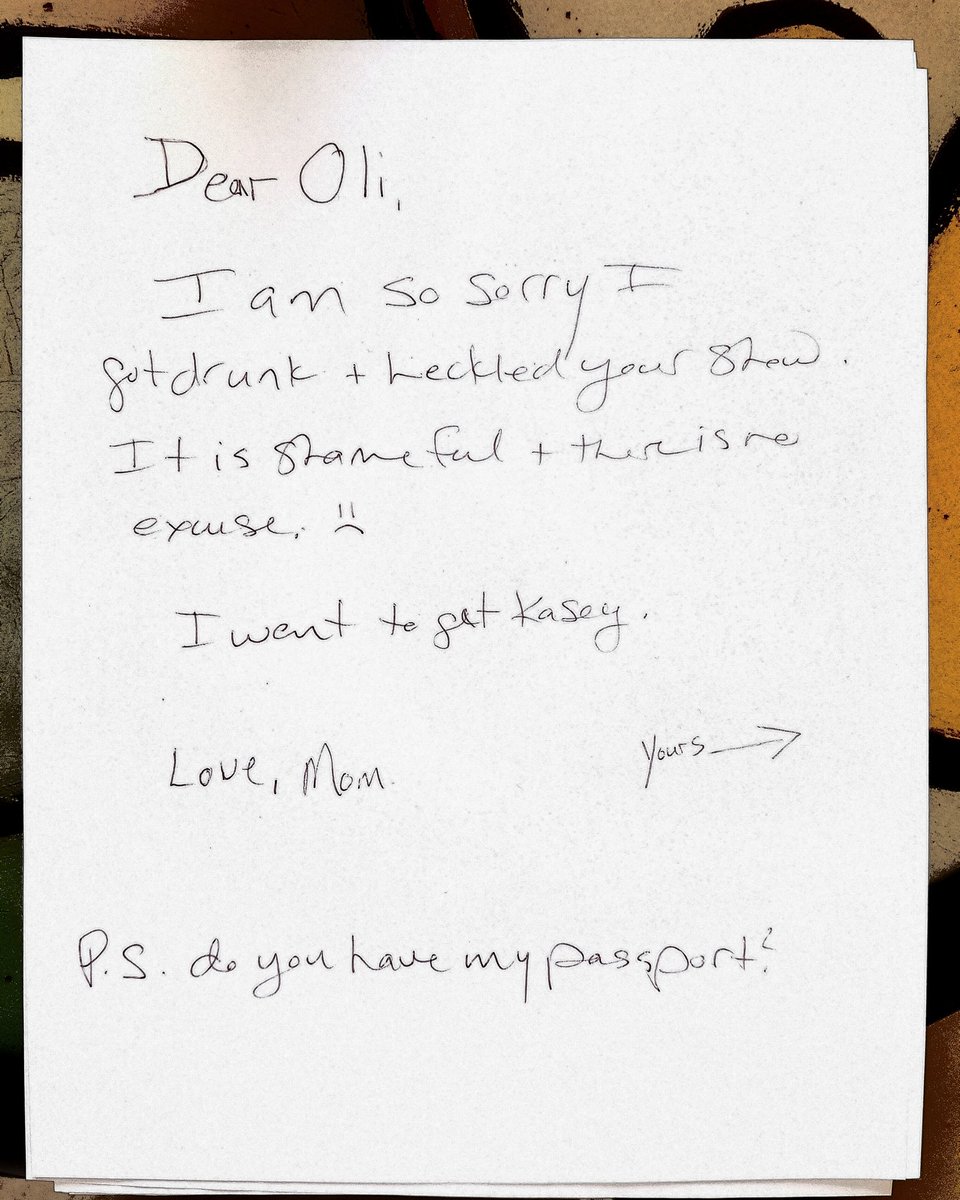 Dear Oli,
I am so sorry I
got drunk + heckled your show.
It is shameful + there is no
excuse.
I went to get Kasey.
Love, Mom.
Yours
P.S. do you have my passport?